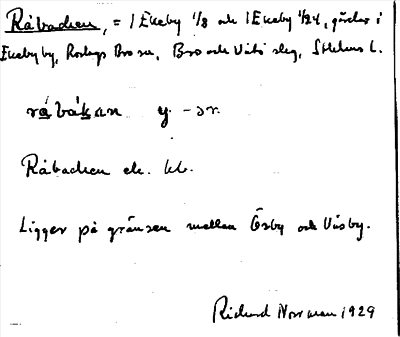 Råbacken, = 1 Ekeby 1/8 och 1 Ekeby 1/24, gårdar i
Ekeby by, Bro sn, Bro och Vätö slg, Sthlms l.
råbakan y. -ər.
Råbacken ek. kb.
Ligger på gränsen mellan Ösby och Väsby.
Richard Norrman 1929